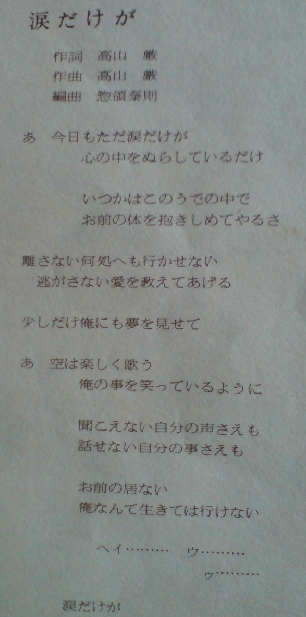 涙だけが
作詞 高山 厳
作曲 高山 厳
編曲 惣領泰則
あ 今日もただ涙だけが
心の中をぬらしているだけ
いつかはこのうでの中で
お前の体を抱きしめてやるさ
離さない何処へも行かせない
逃がさない愛を教えてあげる
少しだけ俺にも夢を見せて
あ 空は楽しく歌う
俺の事を笑っているように
聞こえない自分の声さえも
話せない自分の事さえも
お前の居ない
俺なんて生きては行けない
ヘイ……… ウ………
ゥ………
涙だけが